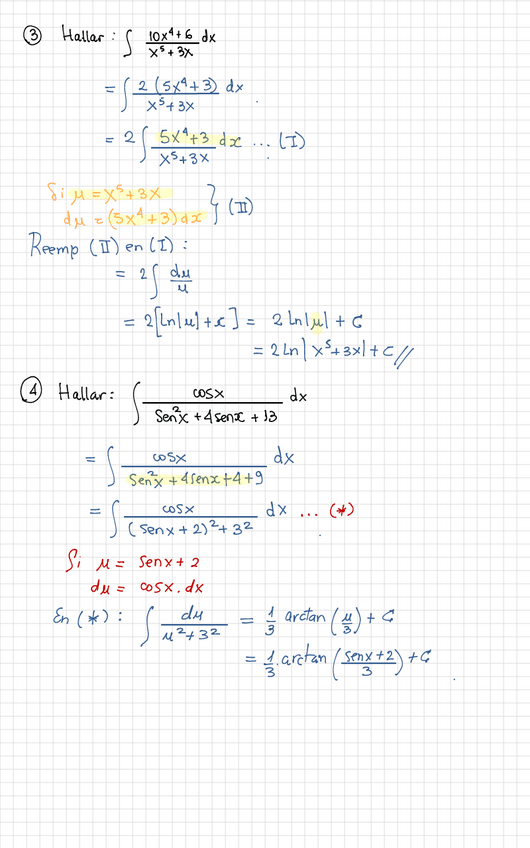 ③ Hallar : ∫ (10x⁴+6)/(x⁵+3x) dx
= ∫ 2(5x⁴+3)/(x⁵+3x) dx .
= 2 ∫ (5x⁴+3)/(x⁵+3x) dx ... (I)
Si μ = x⁵+3x
dμ = (5x⁴+3)dx } (II)
Reemp (II) en (I) :
= 2 ∫ dμ/μ
= 2[Ln|μ|+c] = 2 Ln|μ| + C
= 2 Ln|x⁵+3x| + C //
④ Hallar : ∫ cosx/(Sen²x + 4senx + 13) dx
= ∫ cosx/(Sen²x + 4senx + 4 + 9) dx
= ∫ cosx/((senx + 2)² + 3²) dx ... (*)
Si μ = senx + 2
dμ = cosx . dx
En (*) : ∫ dμ/(μ² + 3²) = 1/3 arctan (μ/3) + C
= 1/3 . arctan ((senx+2)/3) + C